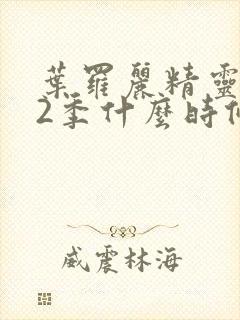 葉羅麗精靈
2季什麼時
威震林海